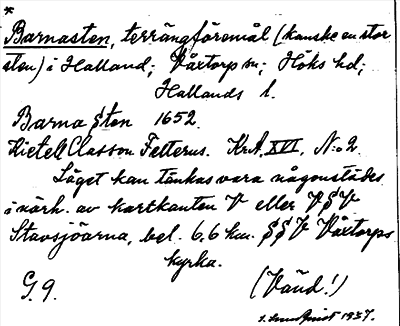 *
Barnasten, terrängföremål (kanske en stor
sten) i Halland; Våxtorp sn; Höks hd;
Hallands l.
Barna Sten 1652.
Kietell Classon Felterus. KrA, XVI, N:o 2.
Läget kan tänkas vara någonstädes
i närh. av kartkanten V eller VSV
Stavsjöarna, bel. 6.6 km. SSV Våxtorps
kyrka.
G. 9. (Vänd!)
1937.